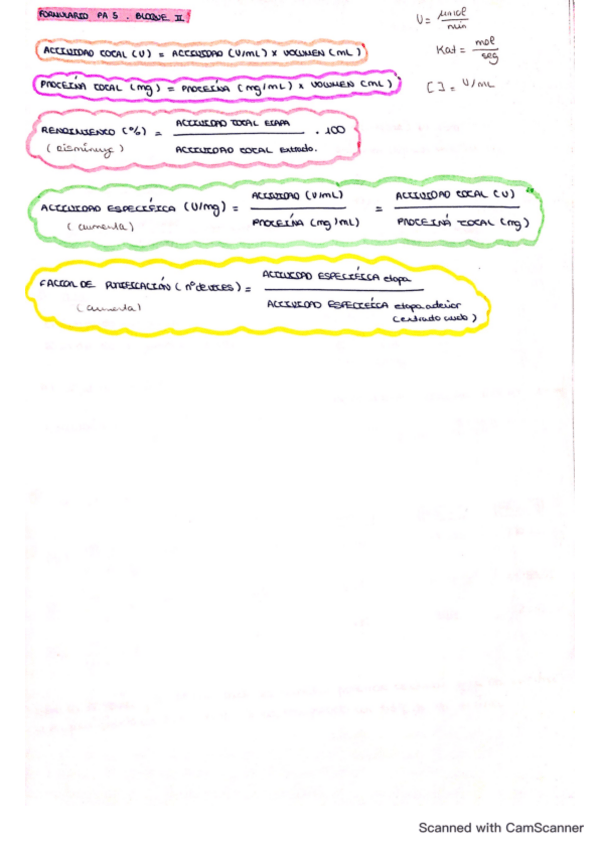 FORMULARIO PA 5. BLOQUE II
U = µmol / min
Kat = mol / seg
[ ] = U/mL
ACTIVIDAD TOTAL (U) = ACTIVIDAD (U/mL) x VOLUMEN (mL)
PROTEÍNA TOTAL (mg) = PROTEÍNA (mg/mL) x VOLUMEN (mL)
RENDIMIENTO (%) = ACTIVIDAD TOTAL ETAPA / ACTIVIDAD TOTAL Extracto. · 100
(disminuye)
ACTIVIDAD ESPECÍFICA (U/mg) = ACTIVIDAD (U/mL) / PROTEÍNA (mg/mL) = ACTIVIDAD TOTAL (U) / PROTEÍNA TOTAL (mg)
(aumenta)
FACTOR DE PURIFICACIÓN (nº de veces) = ACTIVIDAD ESPECÍFICA etapa / ACTIVIDAD ESPECÍFICA etapa anterior
(aumenta)
(extracto crudo)
Scanned with CamScanner